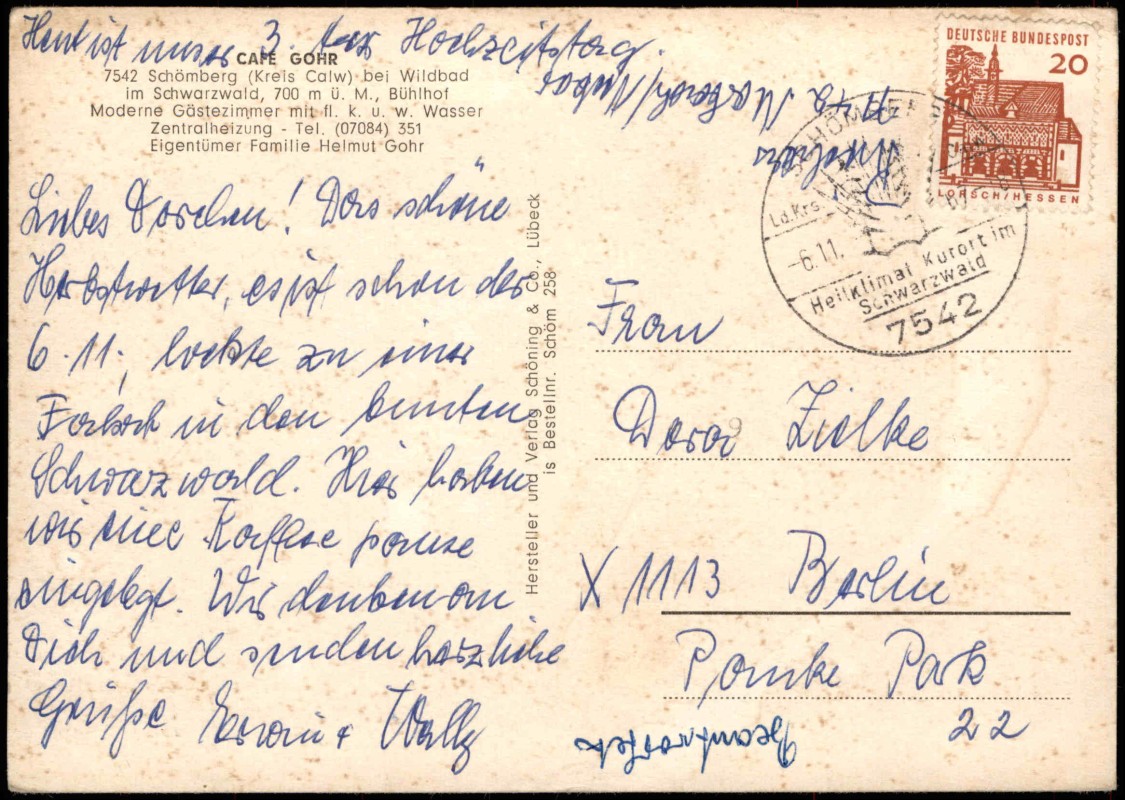 Heut ist unser 3. ter Hochzeitstag.
CAFÉ GOHR
7542 Schömberg (Kreis Calw) bei Wildbad
im Schwarzwald, 700 m ü. M., Bühlhof
Moderne Gästezimmer mit fl. k. u. w. Wasser
Zentralheizung - Tel. (07084) 351
Eigentümer Familie Helmut Gohr
Liebes Dorchen! Das schöne
Herbstwetter, es ist schon der
6.11., lockte zu einer
Fahrt in den bunten
Schwarzwald. Hier haben
wir eine Kaffee pause
eingelegt. Wir denken an
Dich und senden herzliche
Grüße Erwin + Wally
Hersteller und Verlag Schöning & Co., Lübeck
is Bestellnr. Schöm 258
DEUTSCHE BUNDESPOST
20
LORSCH/HESSEN
SCHÖMBERG
Ld.Krs.
-6.11.
Heilklimat Kurort im
Schwarzwald
7542
Frau
Dora Zielke
X 1113 Berlin
Panke Park
22
Beantwortet